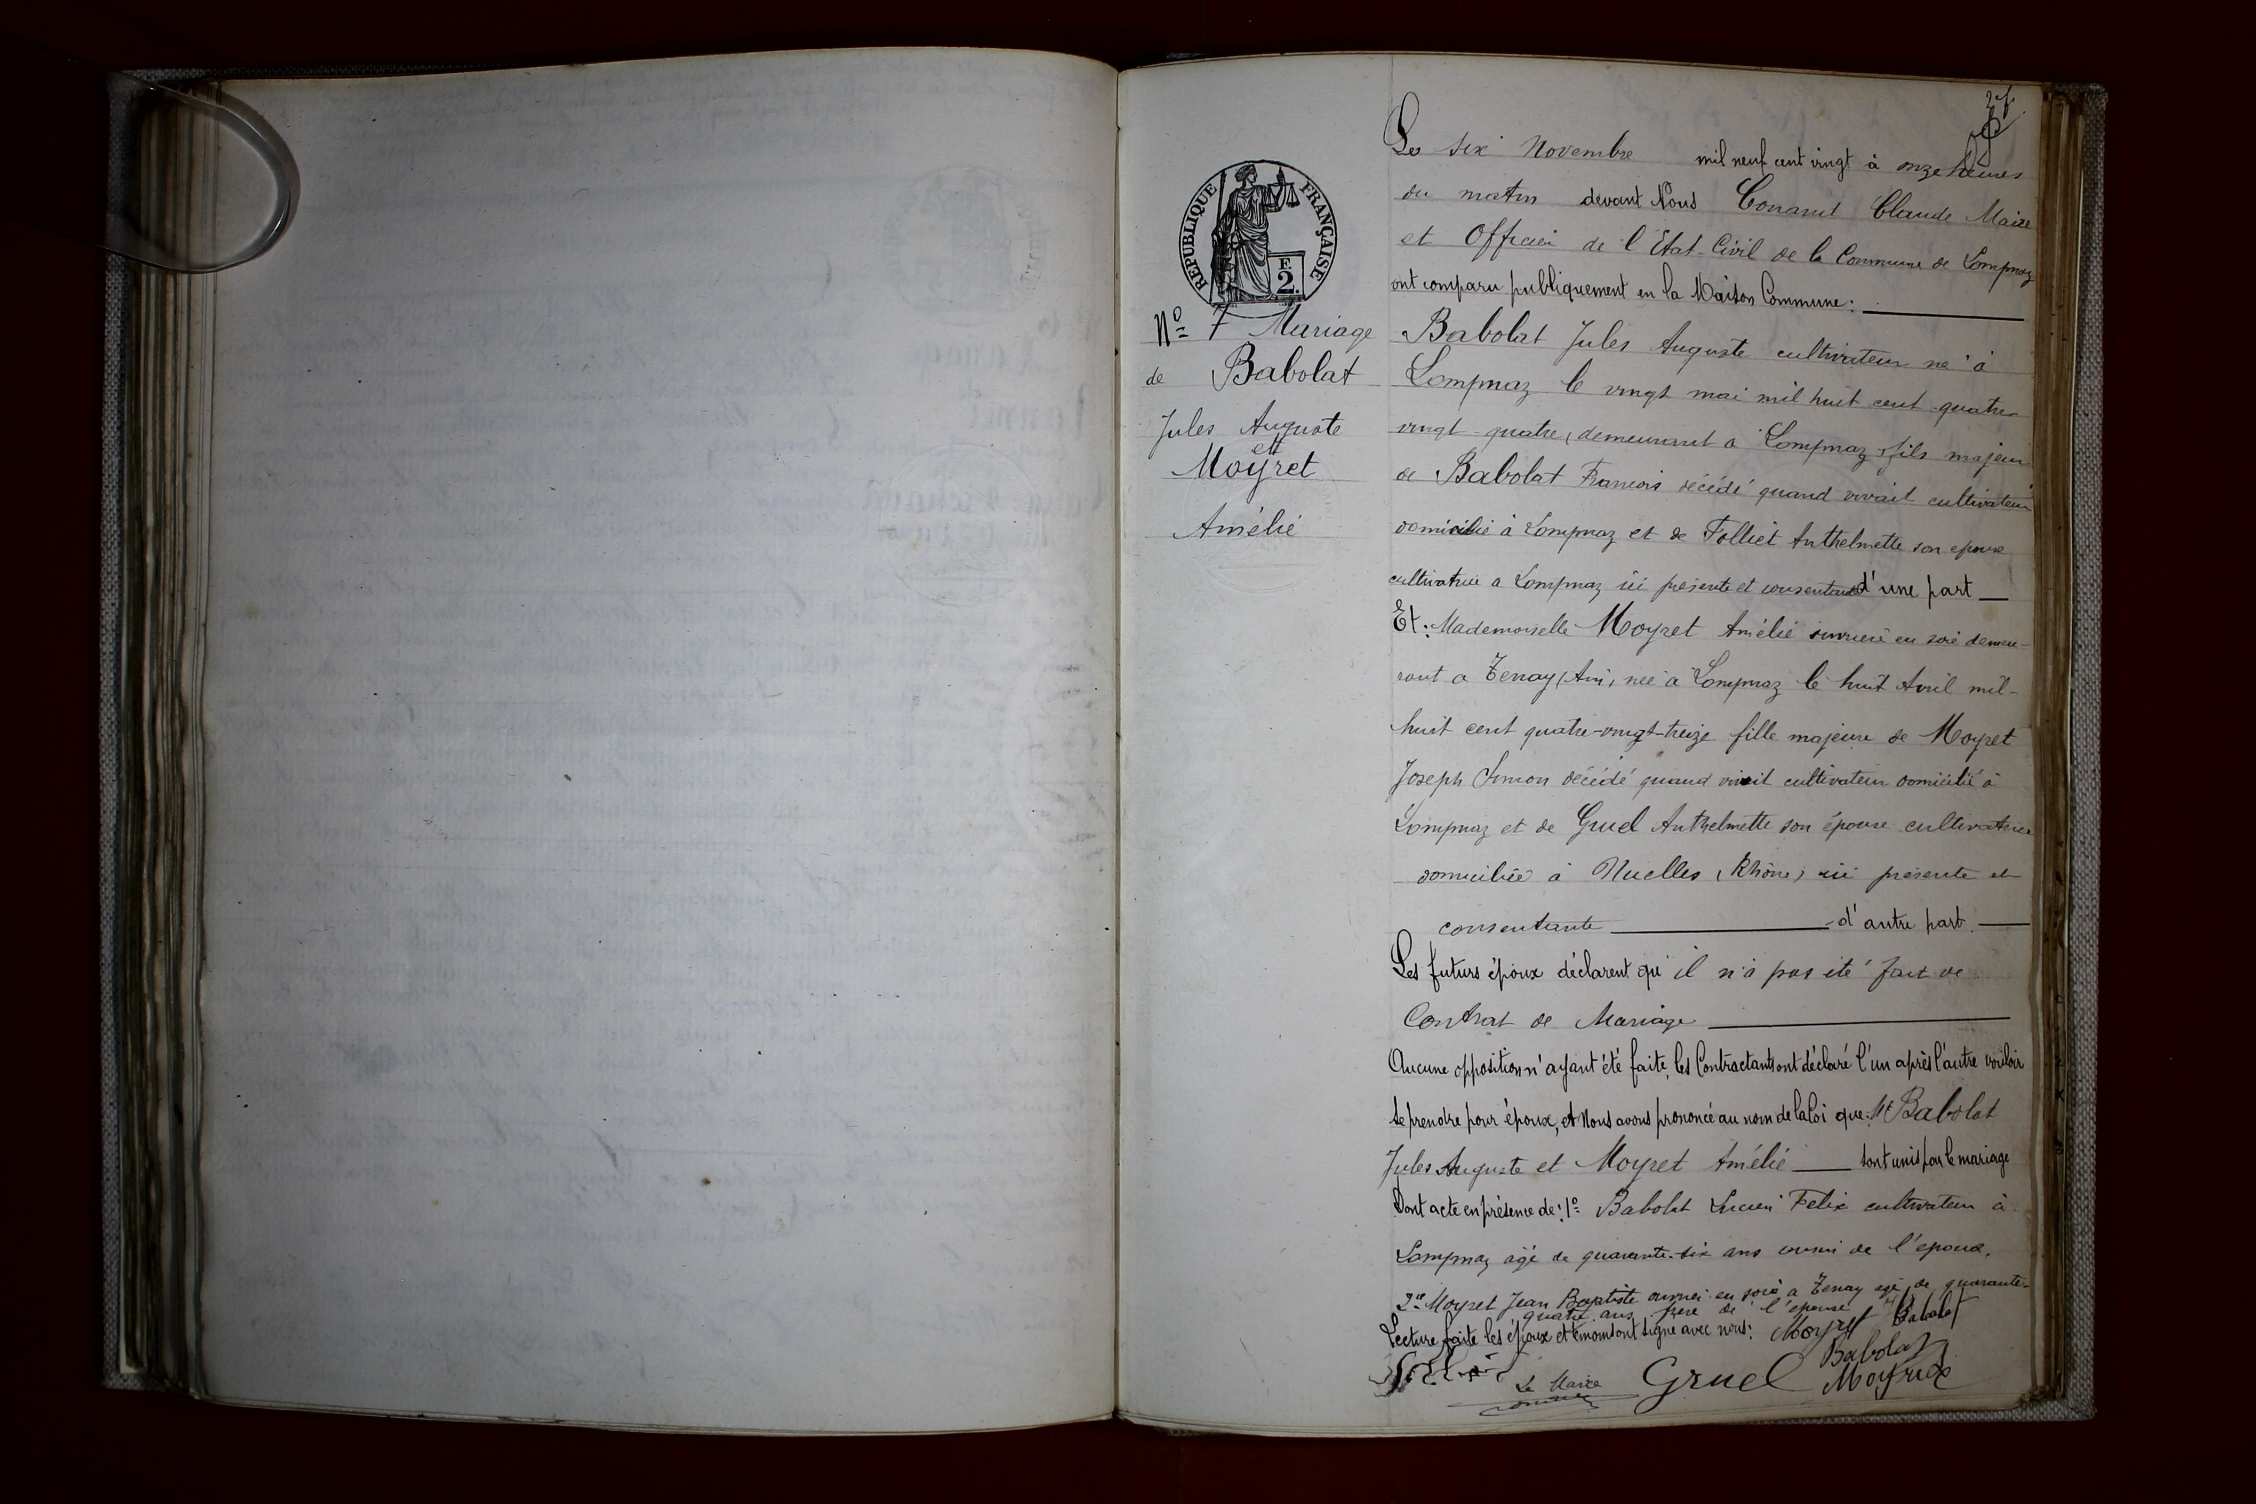 Le six Novembre mil neuf cent vingt à onze heures
du matin devant Nous Conand Claude Maire
et Officier de l'Etat-Civil de la Commune de Lompnaz
ont comparu publiquement en la Maison Commune :
REPUBLIQUE FRANÇAISE
F.
2.
No 7 Mariage
de Babolat
Jules Auguste
et
Moyret
Amélie
Babolat Jules Auguste cultivateur né à
Lompnaz le vingt mai mil huit cent quatre-
vingt-quatre, demeurant a Lompnaz, fils majeur
de Babolat Francois décédé quand vivait cultivateur
domicilié à Lompnaz et de Folliet Anthelmette son epouse
cultivatrice a Lompnaz ici présente et consentante d'une part
Et : Mademoiselle Moyret Amélie ouvrière en soie demeu-
rant a Tenay (Ain) née à Lompnaz le huit Avril mil-
huit cent quatre-vingt-treize fille majeure de Moyret
Joseph Simon décédé quand vivait cultivateur domicilié à
Lompnaz et de Gruel Anthelmette son épouse cultivatrice
domiciliée à Nuelles (Rhône) ici présente et
consentante d'autre part.
Les futurs époux déclarent qu'il n'a pas été fait de
Contrat de Mariage
Aucune opposition n'ayant été faite, les Contractants ont déclaré l'un après l'autre vouloir
se prendre pour époux, et Nous avons prononcé au nom de la loi que : Mr Babolat
Jules Auguste et Moyret Amélie sont unis par le mariage
Dont acte en présence de : 1o Babolat Lucien Felix cultivateur à
Lompnaz agé de quarante-six ans cousin de l'epoux.
2e Moyret Jean Baptiste ouvrier en soie a Tenay agé de quarante-
quatre ans frère de l'épouse
Lecture faite les époux et témoins ont signé avec nous : Moyret Babolat
Babolat
Le Maire Gruel Moyret